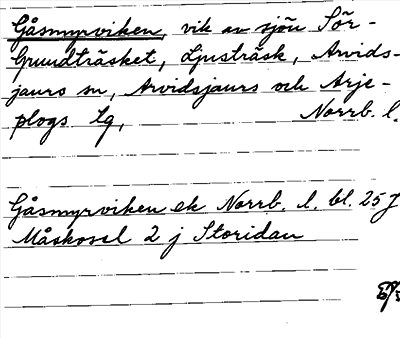 Gåsmyrviken, vik av sjön Sör-
Grundträsket, Ljusträsk, Arvids-
jaurs sn, Arvidsjaurs och Arje-
plogs tg, Norrb. l.
Gåsmyrviken ek Norrb. l. bl. 25 J
Måskosel 2 j Storidan